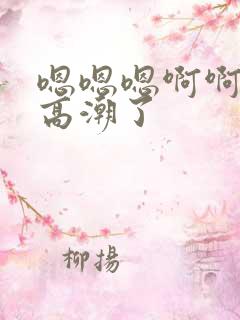 嗯嗯嗯啊啊
高潮了
柳揚